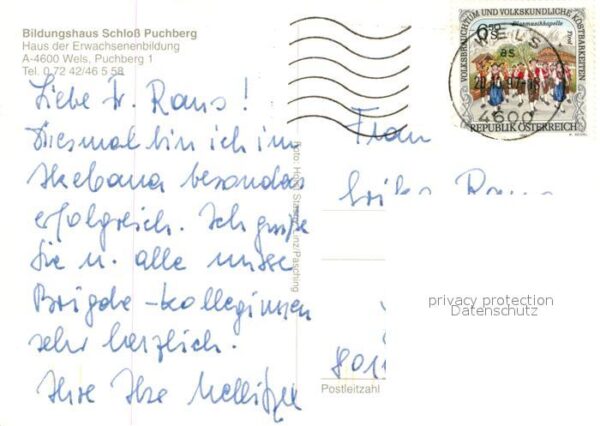 Bildungshaus Schloß Puchberg
Haus der Erwachsenenbildung
A-4600 Wels, Puchberg 1
Tel. 0 72 42/46 5 58
Liebe Fr. Raus !
Diesmal bin ich im
Ikebana besonders
erfolgreich. Ich grüße
Sie u. alle unsere
Brigde-kolleginnen
sehr herzlich.
Ihre Ilse
Frau
Erika
801
Postleitzahl
VOLKSBRAUCHTUM UND VOLKSKUNDLICHE KOSTBARKEITEN
Blasmusikkapelle
Tirol
6.50
S
REPUBLIK ÖSTERREICH
WELS
as
4600
privacy protection
Datenschutz